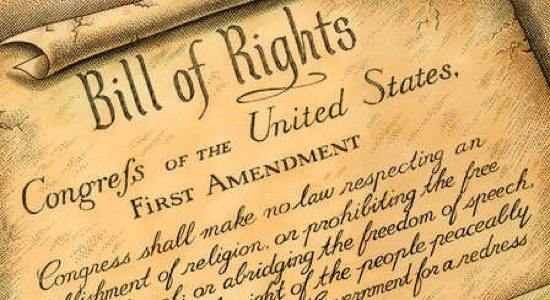 Bill of Rights
Congreſs OF THE United States,
FIRST AMENDMENT
Congress shall make no law respecting an
blishment of religion, or prohibiting the free
; or abridging the freedom of speech,
ght of the people peaceably
Government for a redress